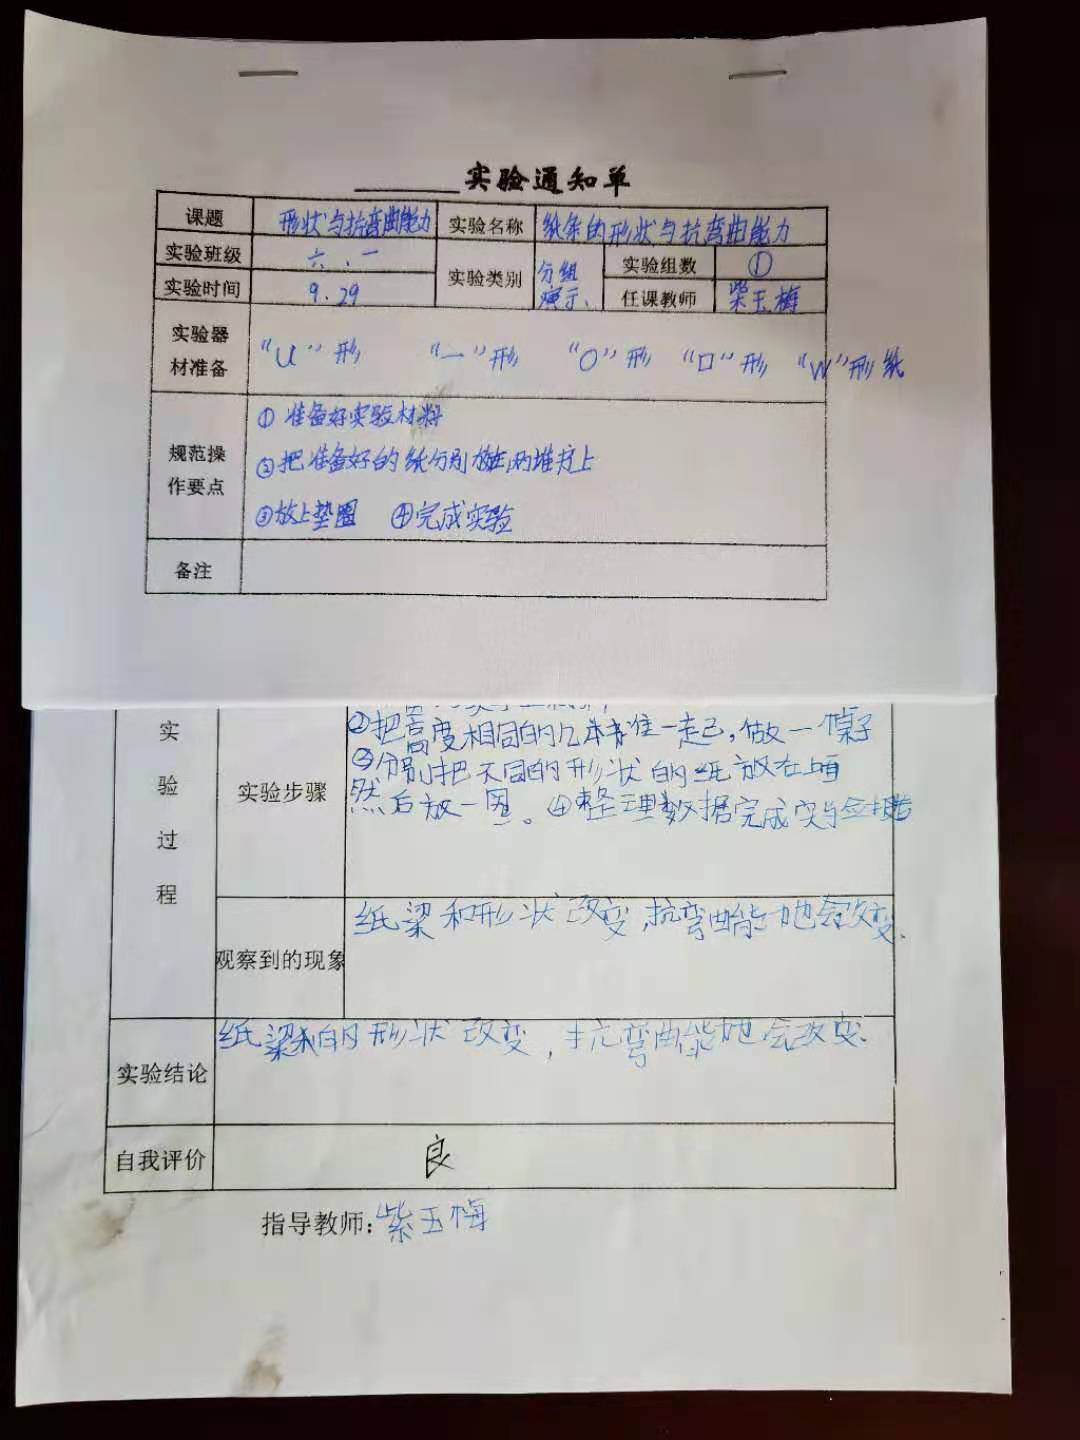 实验通知单
课题 形状与抗弯曲能力 实验名称 纸条的形状与抗弯曲能力
实验班级 六.一 实验类别 分组 演示. 实验组数 ①
实验时间 9.29 任课教师 柴玉梅
实验器材准备 “U”形 “一”形 “O”形 “口”形 “W”形纸
规范操作要点 ①准备好实验材料
②把准备好的纸分别放在两堆书上
③放上垫圈 ④完成实验
备注
实验过程
实验步骤
②把高度相同的几本书堆一起,做一个桌子
③分别把不同的形状的纸放在上面
然后放一圈。④整理数据完成实验报告
观察到的现象 纸梁和形状改变,抗弯曲能力也会改变.
实验结论 纸梁的形状改变,抗弯曲能力也会改变.
自我评价 良
指导教师:紫玉梅